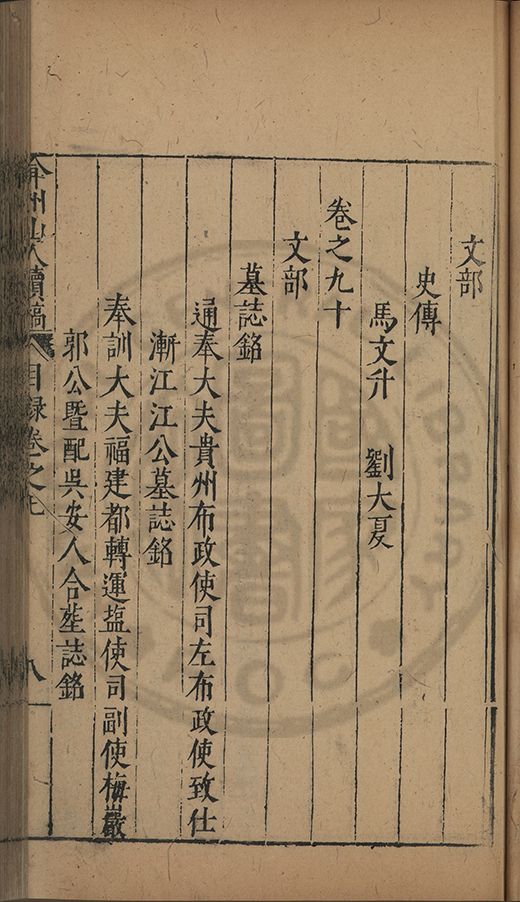 文部
史傳
馬文升 劉大夏
卷之九十
文部
墓誌銘
通奉大夫貴州布政使司左布政使致仕
漸江江公墓誌銘
奉訓大夫福建都轉運塩使司副使梅巖
郭公曁配吳安人合塟誌銘
弇州山人續稿 目録卷之七 八